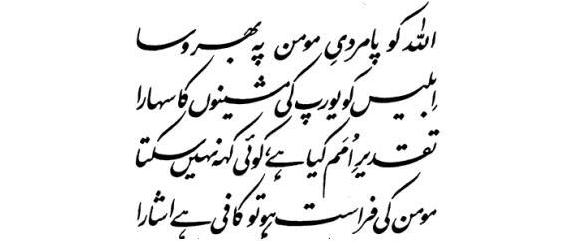 اللہ کو پامردیِ مومن پہ بھروسا
اِبلیس کو یورپ کی مشینوں کا سہارا
تقدیرِ اُمَم کیا ہے، کوئی کہہ نہیں سکتا
مومن کی فراست ہو تو کافی ہے اشارا